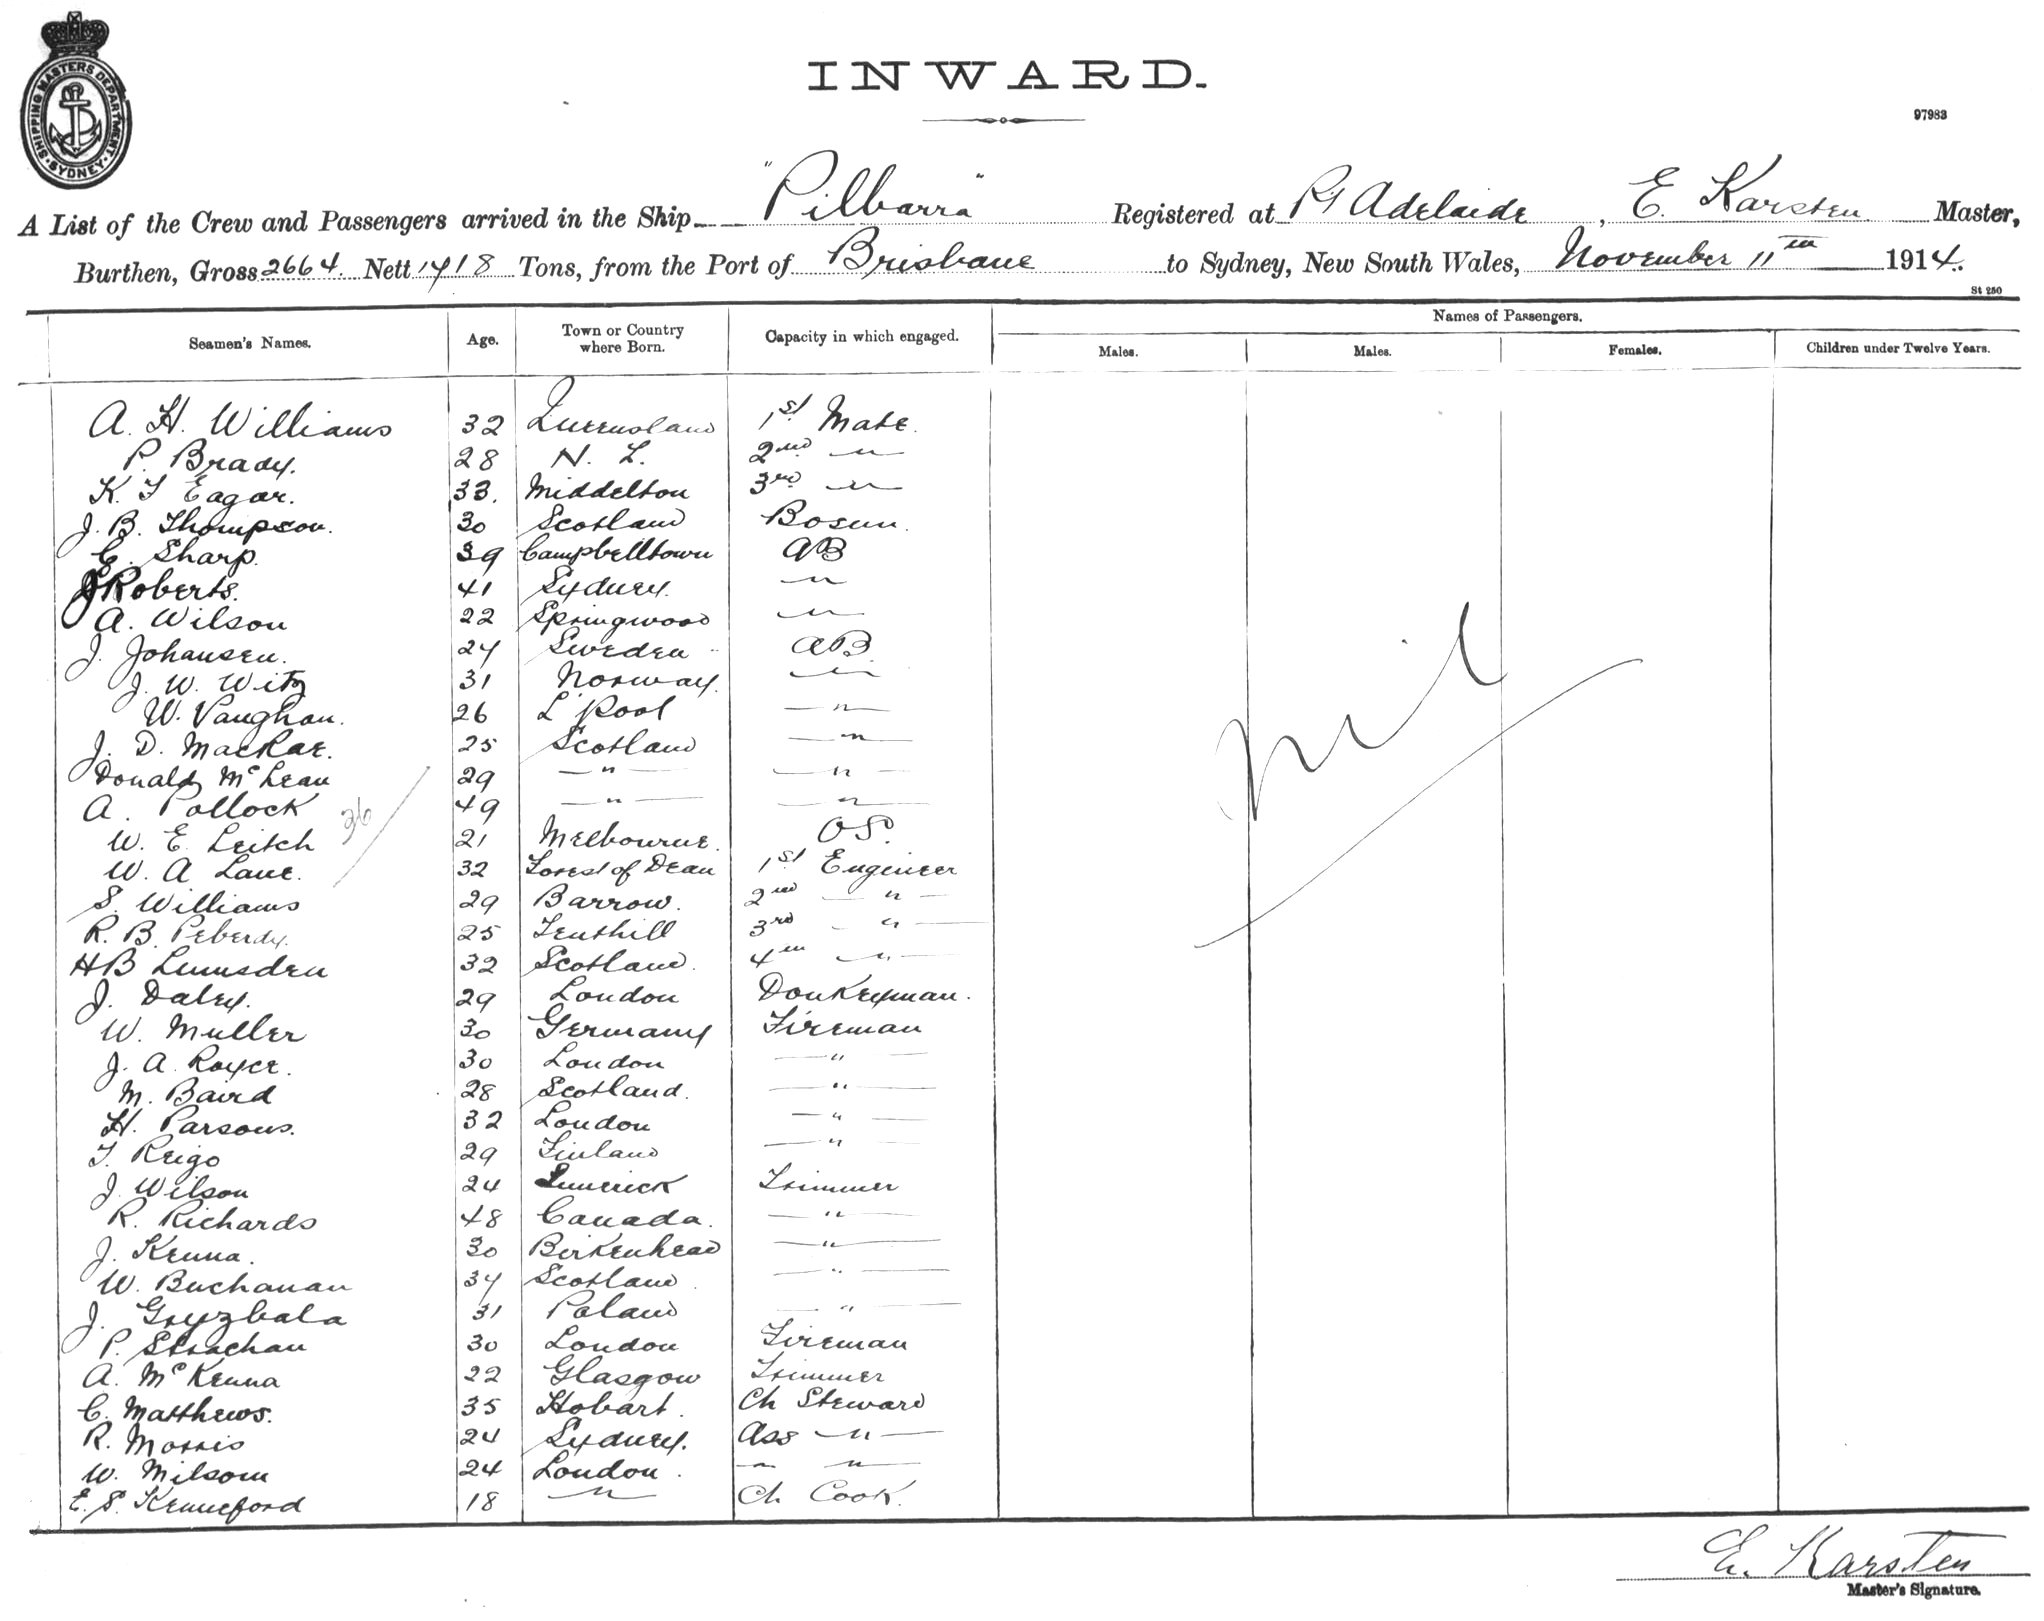 SHIPPING MASTERS DEPARTMENT. SYDNEY
INWARD.
97983
A List of the Crew and Passengers arrived in the Ship "Pilbarra" Registered at Pt Adelaide, E. Karsten Master,
Burthen, Gross 2664. Nett 1418 Tons, from the Port of Brisbane to Sydney, New South Wales, November 11th 1914.
St 250
Seamen's Names. Age. Town or Country where Born. Capacity in which engaged. Names of Passengers.
Males. Males. Females. Children under Twelve Years.
A. H. Williams 32 Queensland 1st Mate.
P. Brady. 28 N. Z. 2nd "
K. J Eagar. 33. Middelton 3rd "
J. B. Thompson. 30 Scotland Bosun.
C. Sharp. 39 Campbelltown AB
J Roberts. 41 Sydney. "
A. Wilson 22 Springwood "
J. Johansen. 24 Sweden AB
J. W. Witz 31 Norway. "
W. Vaughan. 26 L'Pool "
J. D. MacRae. 25 Scotland "
Donald McLean 29 " "
A. Pollock 49 " "
36
W. E. Leitch 21 Melbourne. OS.
W. A Lane. 32 Forest of Dean 1st Engineer
S. Williams 29 Barrow. 2nd "
R. B. Peberdy. 25 Tenthill 3rd "
HB Lumsden 32 Scotland. 4th "
J. Daley. 29 London Donkeyman.
W. Muller 30 Germany Fireman
J. A. Royce. 30 London "
M. Baird 28 Scotland. "
H. Parsons. 32 London "
T. Reigo 29 Finland "
J. Wilson 24 Limerick Trimmer
R. Richards 48 Canada. "
J. Kenna. 30 Birkenhead "
W. Buchanan 34 Scotland "
J. Gryzbala 31 Poland "
P. Strachan 30 London Fireman
A. McKenna 22 Glasgow Trimmer
C. Matthews. 35 Hobart. Ch Steward
R. Morris 24 Sydney. Ass "
W. Milsom 24 London. " "
E. S. Kenneford 18 " Ch Cook.
nil
E. Karsten
Master's Signature.